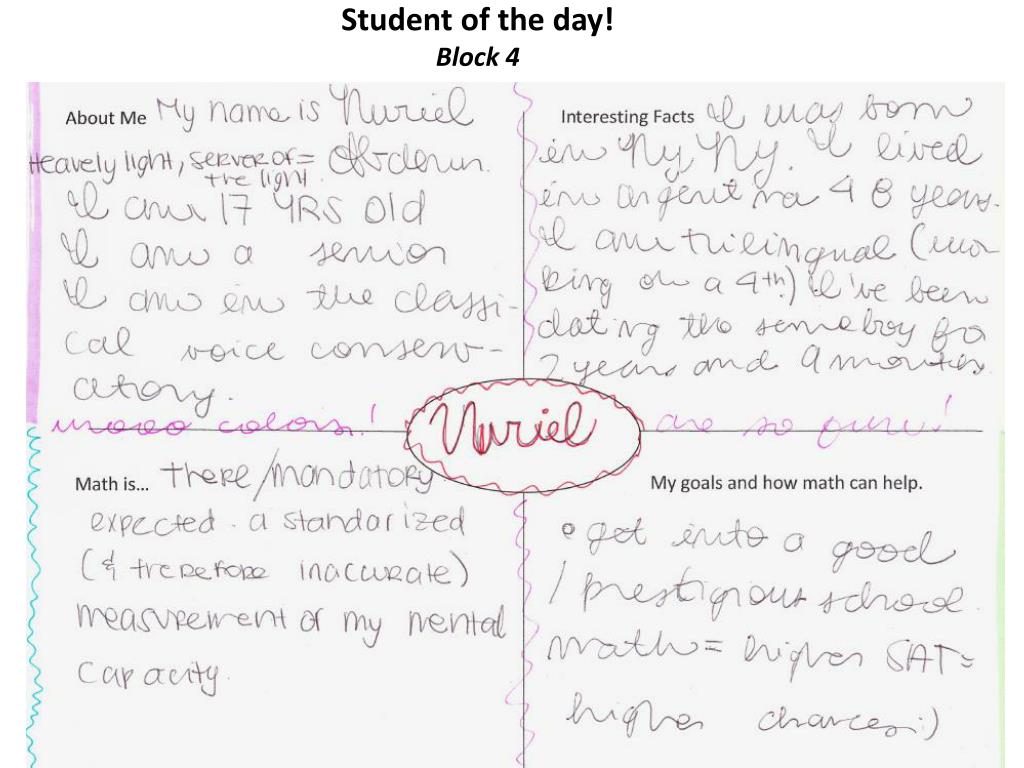 Student of the day!
Block 4
About Me My name is Nuriel
Heavely light, server of =
the light.
I am 17 YRS Old
I am a senior
I am in the classi-
cal voice conserv-
atory.
Interesting Facts I was born
in Ny, Ny. I lived
in Argentina 4 8 years.
I am trilingual (wor
king on a 4th.) I've been
dating the same boy fo
2 years and 9 months.
colors!
are so fun!
Nuriel
Math is... There/mandatory
expected. a standarized
(& therefore inaccurate)
measurement of my mental
capacity.
My goals and how math can help.
• get into a good
/ prestigious school.
math = higher SAT =
higher chances :)